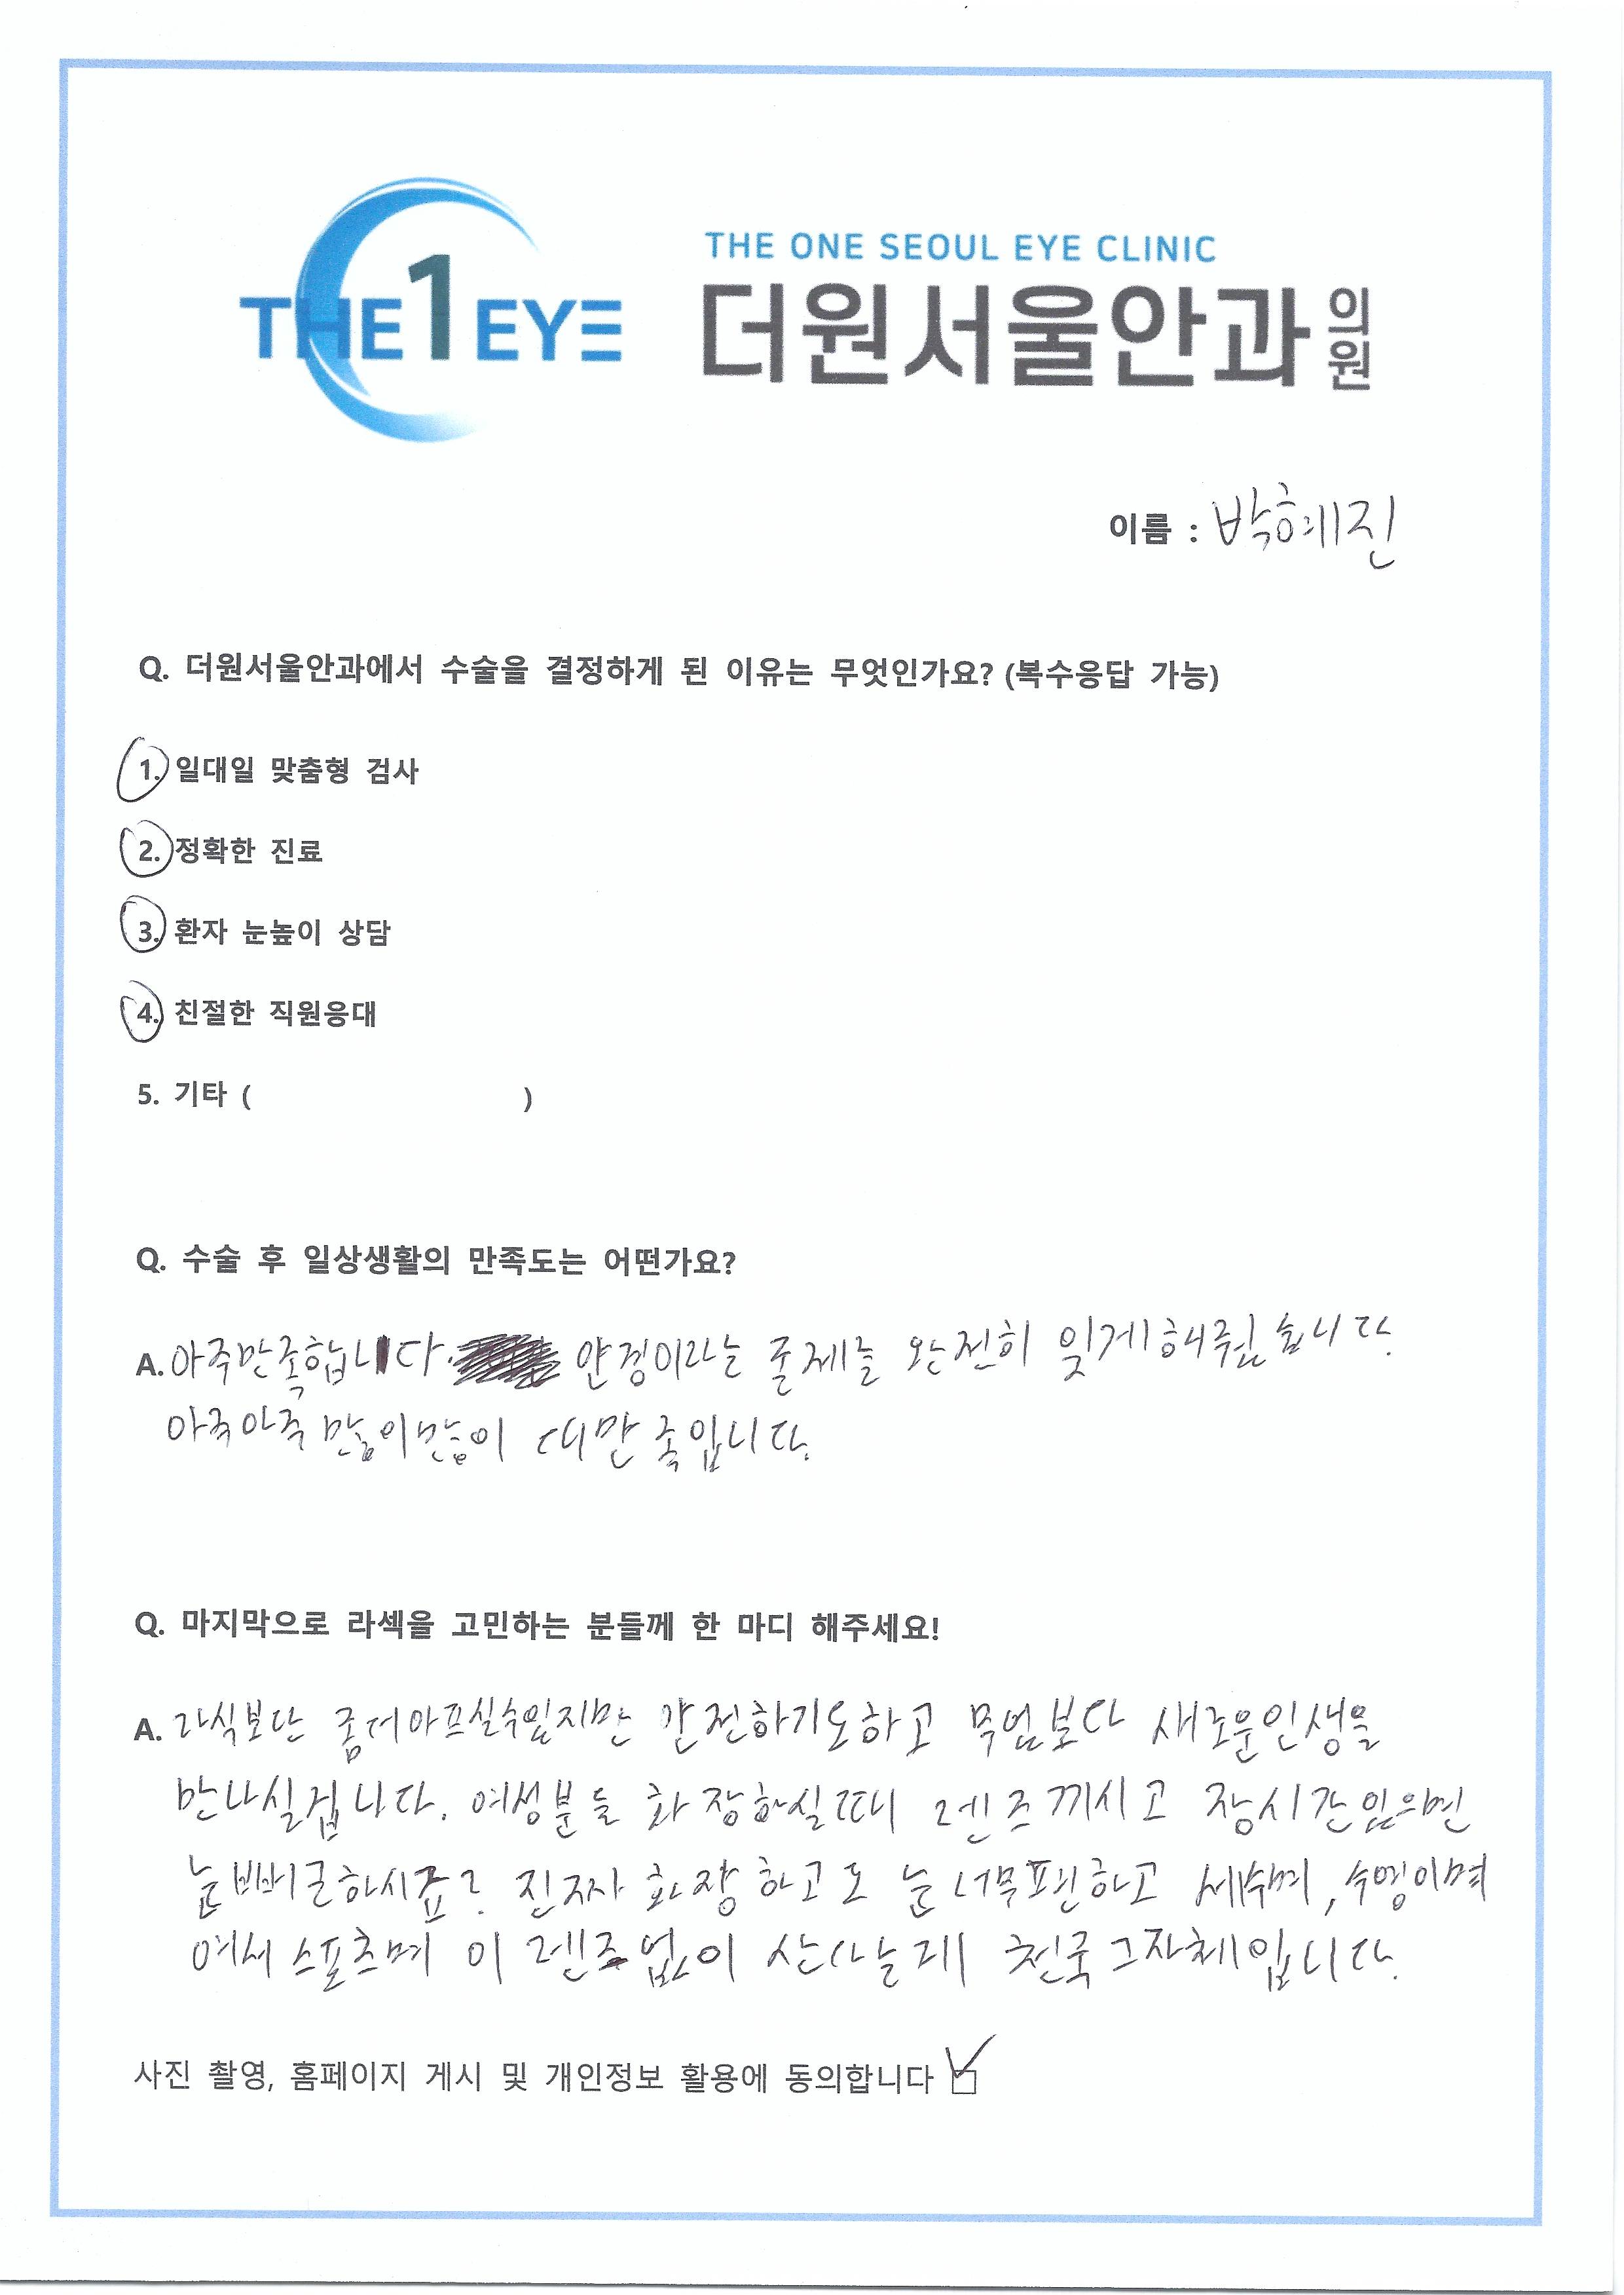 THE 1 EYE
THE ONE SEOUL EYE CLINIC
더원서울안과의원
이름 : 박혜진
Q. 더원서울안과에서 수술을 결정하게 된 이유는 무엇인가요? (복수응답 가능)
1. 일대일 맞춤형 검사
2. 정확한 진료
3. 환자 눈높이 상담
4. 친절한 직원응대
5. 기타 ( )
Q. 수술 후 일상생활의 만족도는 어떤가요?
A. 아주만족합니다. 안경이라는 존재를 완전히 잊게해줬습니다.
아주아주 많이많이 대만족입니다.
Q. 마지막으로 라섹을 고민하는 분들께 한 마디 해주세요!
A. 라식보단 좀더아프실수있지만 안전하기도하고 무엇보다 새로운인생을
만나실겁니다. 여성분들 화장하실때 렌즈끼시고 장시간있으면
눈빠지근하시죠? 진짜 화장하고도 눈너무편하고 세수며, 수영이며
여서 스포츠며 이 렌즈없이 산다는게 천국그자체입니다.
사진 촬영, 홈페이지 게시 및 개인정보 활용에 동의합니다